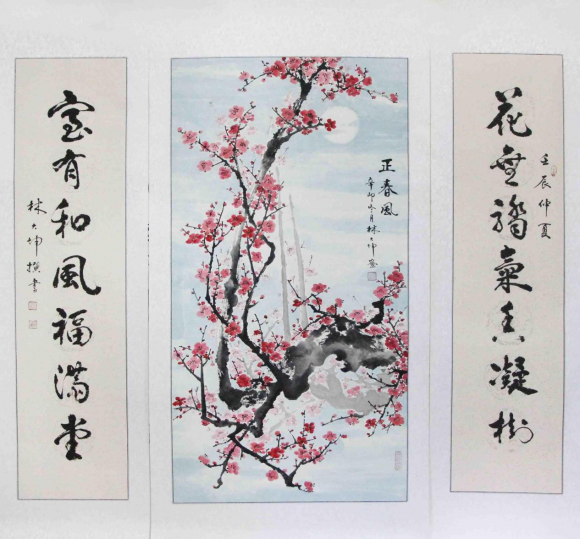 花無氣香凝樹
壬辰仲夏
正春風
辛卯月林大坤
室有和風福滿堂
林大坤撰書